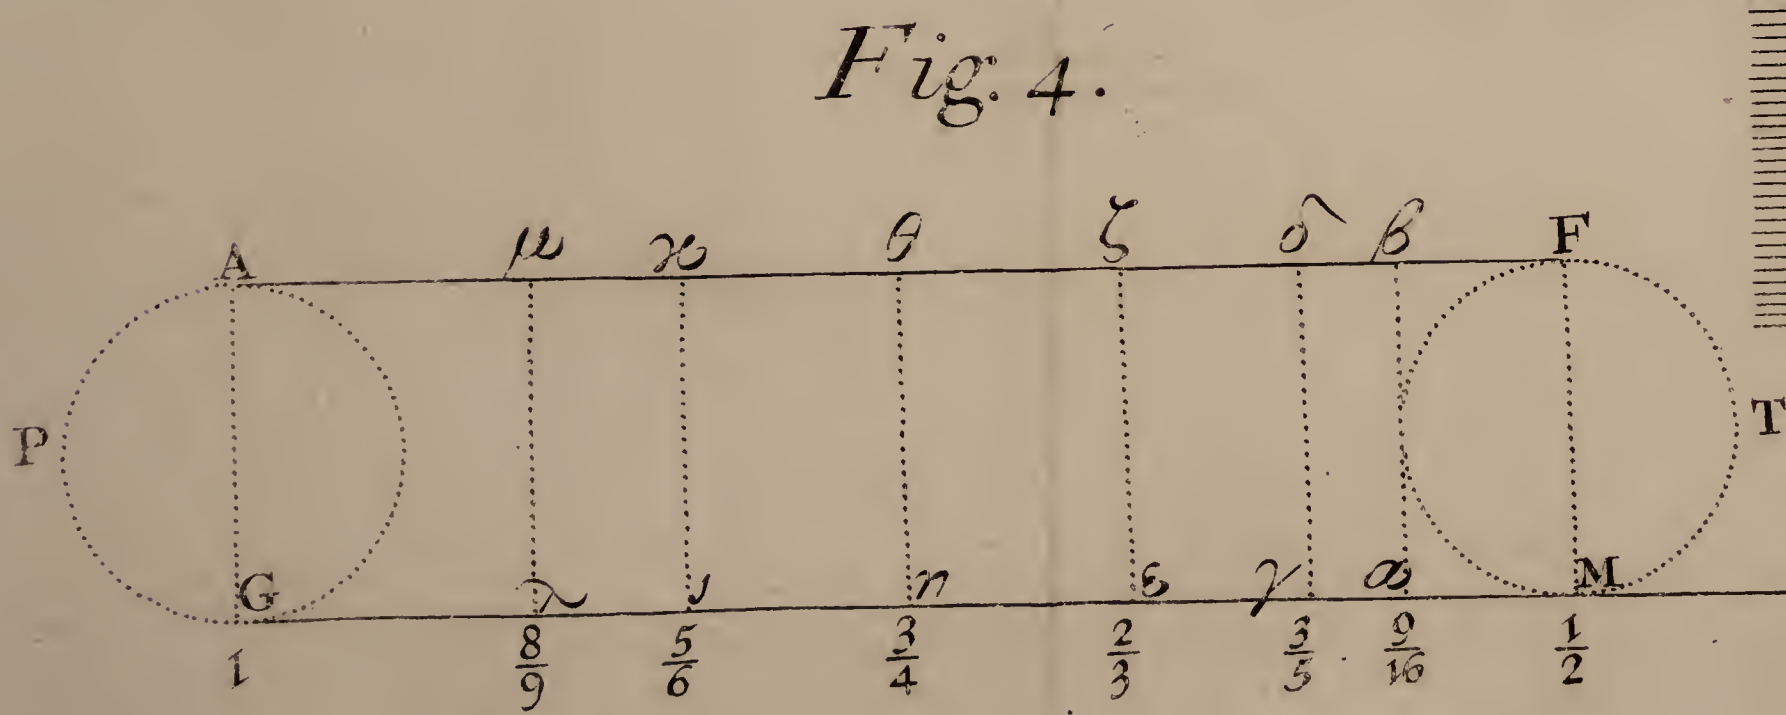 Fig. 4.
A μ ϰ θ ζ δ β F
P T
G λ ι η ε γ α M
1 8/9 5/6 3/4 2/3 3/5 9/16 1/2